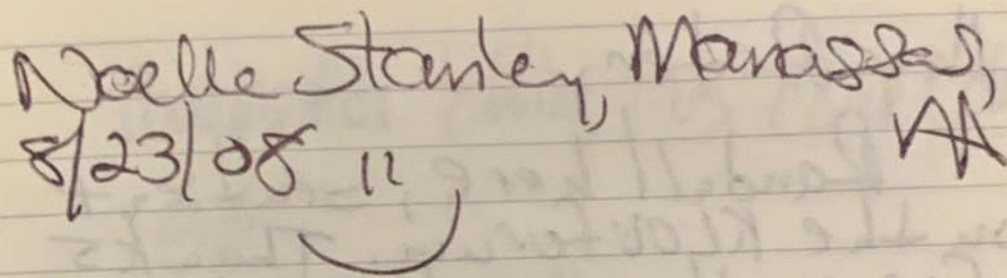 Noelle Stanley, Manassas,
VA
8/23/08